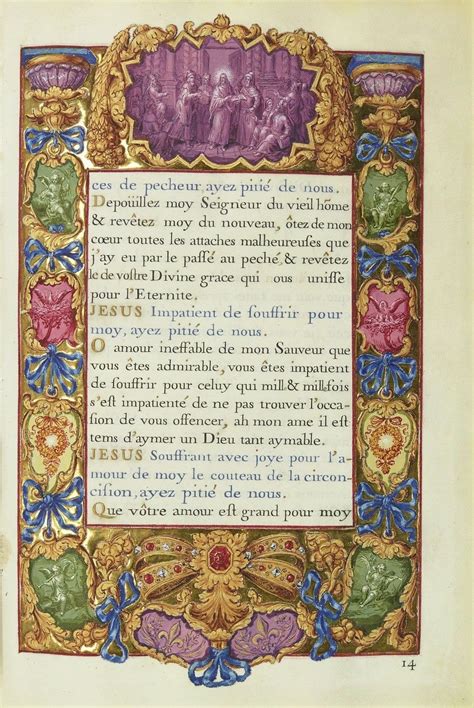 ces de pecheur, ayez pitié de nous.
Depoüillez moy Seigneur du vieil hõme
& revêtez moy du nouveau, ôtez de mon
cœur toutes les attaches malheureuses que
j'ay eu par le passé au peché & revêtez
le de vostre Divine grace qui nous unisse
pour l'Eternite.
JESUS Impatient de souffrir pour
moy, ayez pitié de nous.
O amour ineffable de mon Sauveur que
vous êtes admirable, vous êtes impatient
de souffrir pour celuy qui mill.& mill.fois
s'est impatienté de ne pas trouver l'occa-
sion de vous offencer, ah mon ame il est
tems d'aymer un Dieu tant aymable.
JESUS Souffrant avec joye pour l'a-
mour de moy le couteau de la circon-
cision, ayez pitié de nous.
Que vôtre amour est grand pour moy
14